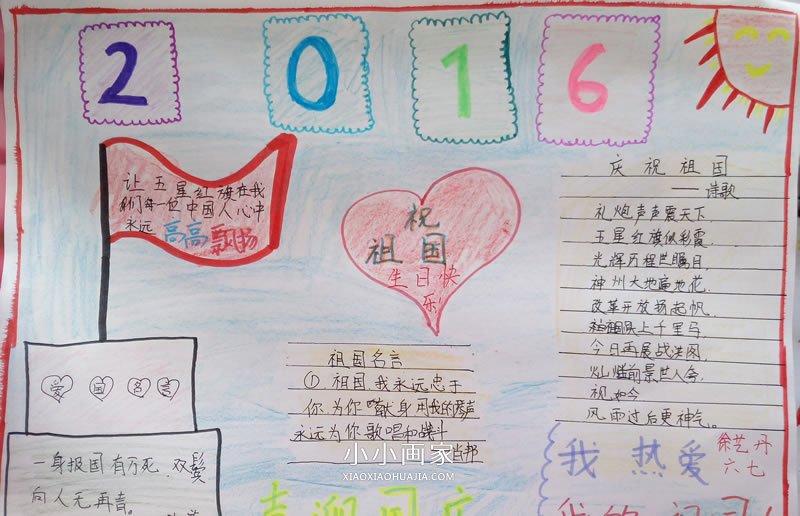 2016
让五星红旗在我
们每一位中国人心中
永远高高飘扬
祝
祖国
生日快
乐!
庆祝祖国
——诗歌
礼炮声声震天下
五星红旗似彩霞
光辉历程世瞩目
神州大地遍地花
改革开放扬起帆
祖国跃上千里马
今日再展战洪图
灿烂前景世人
视如今
风雨过后更神气。
爱国名言
一身报国有万死 双鬓
向人无再青。
祖国名言
① 祖国我永远忠于
你为你献身用我的琴声
永远为你歌唱和战斗
肖邦
小小画家
XIAOXIAOHUAJIA.COM
喜迎国庆
我热爱
徐艺丹
六七
我的祖国!